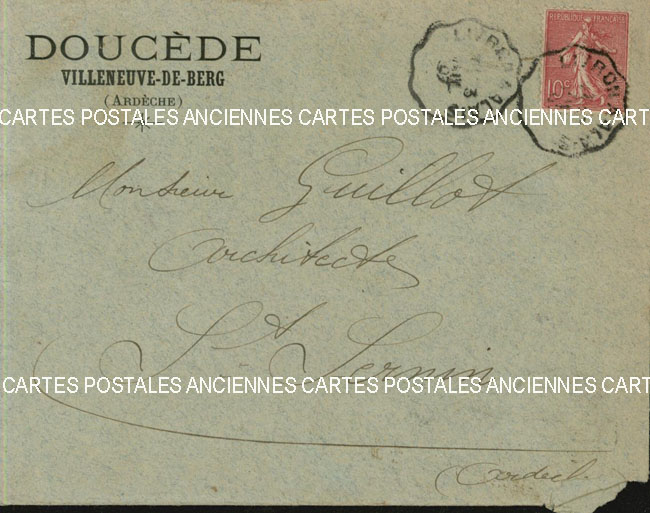 DOUCÈDE
VILLENEUVE-DE-BERG
(ARDÈCHE)
REPUBLIQUE FRANÇAISE
10c
LIVRON
CARTES POSTALES ANCIENNES CARTES POSTALES ANCIENNES CART
Monsieur Guillot
Architecte
St Sernin
CARTES POSTALES ANCIENNES CARTES POSTALES ANCIENNES CART
Ardèche